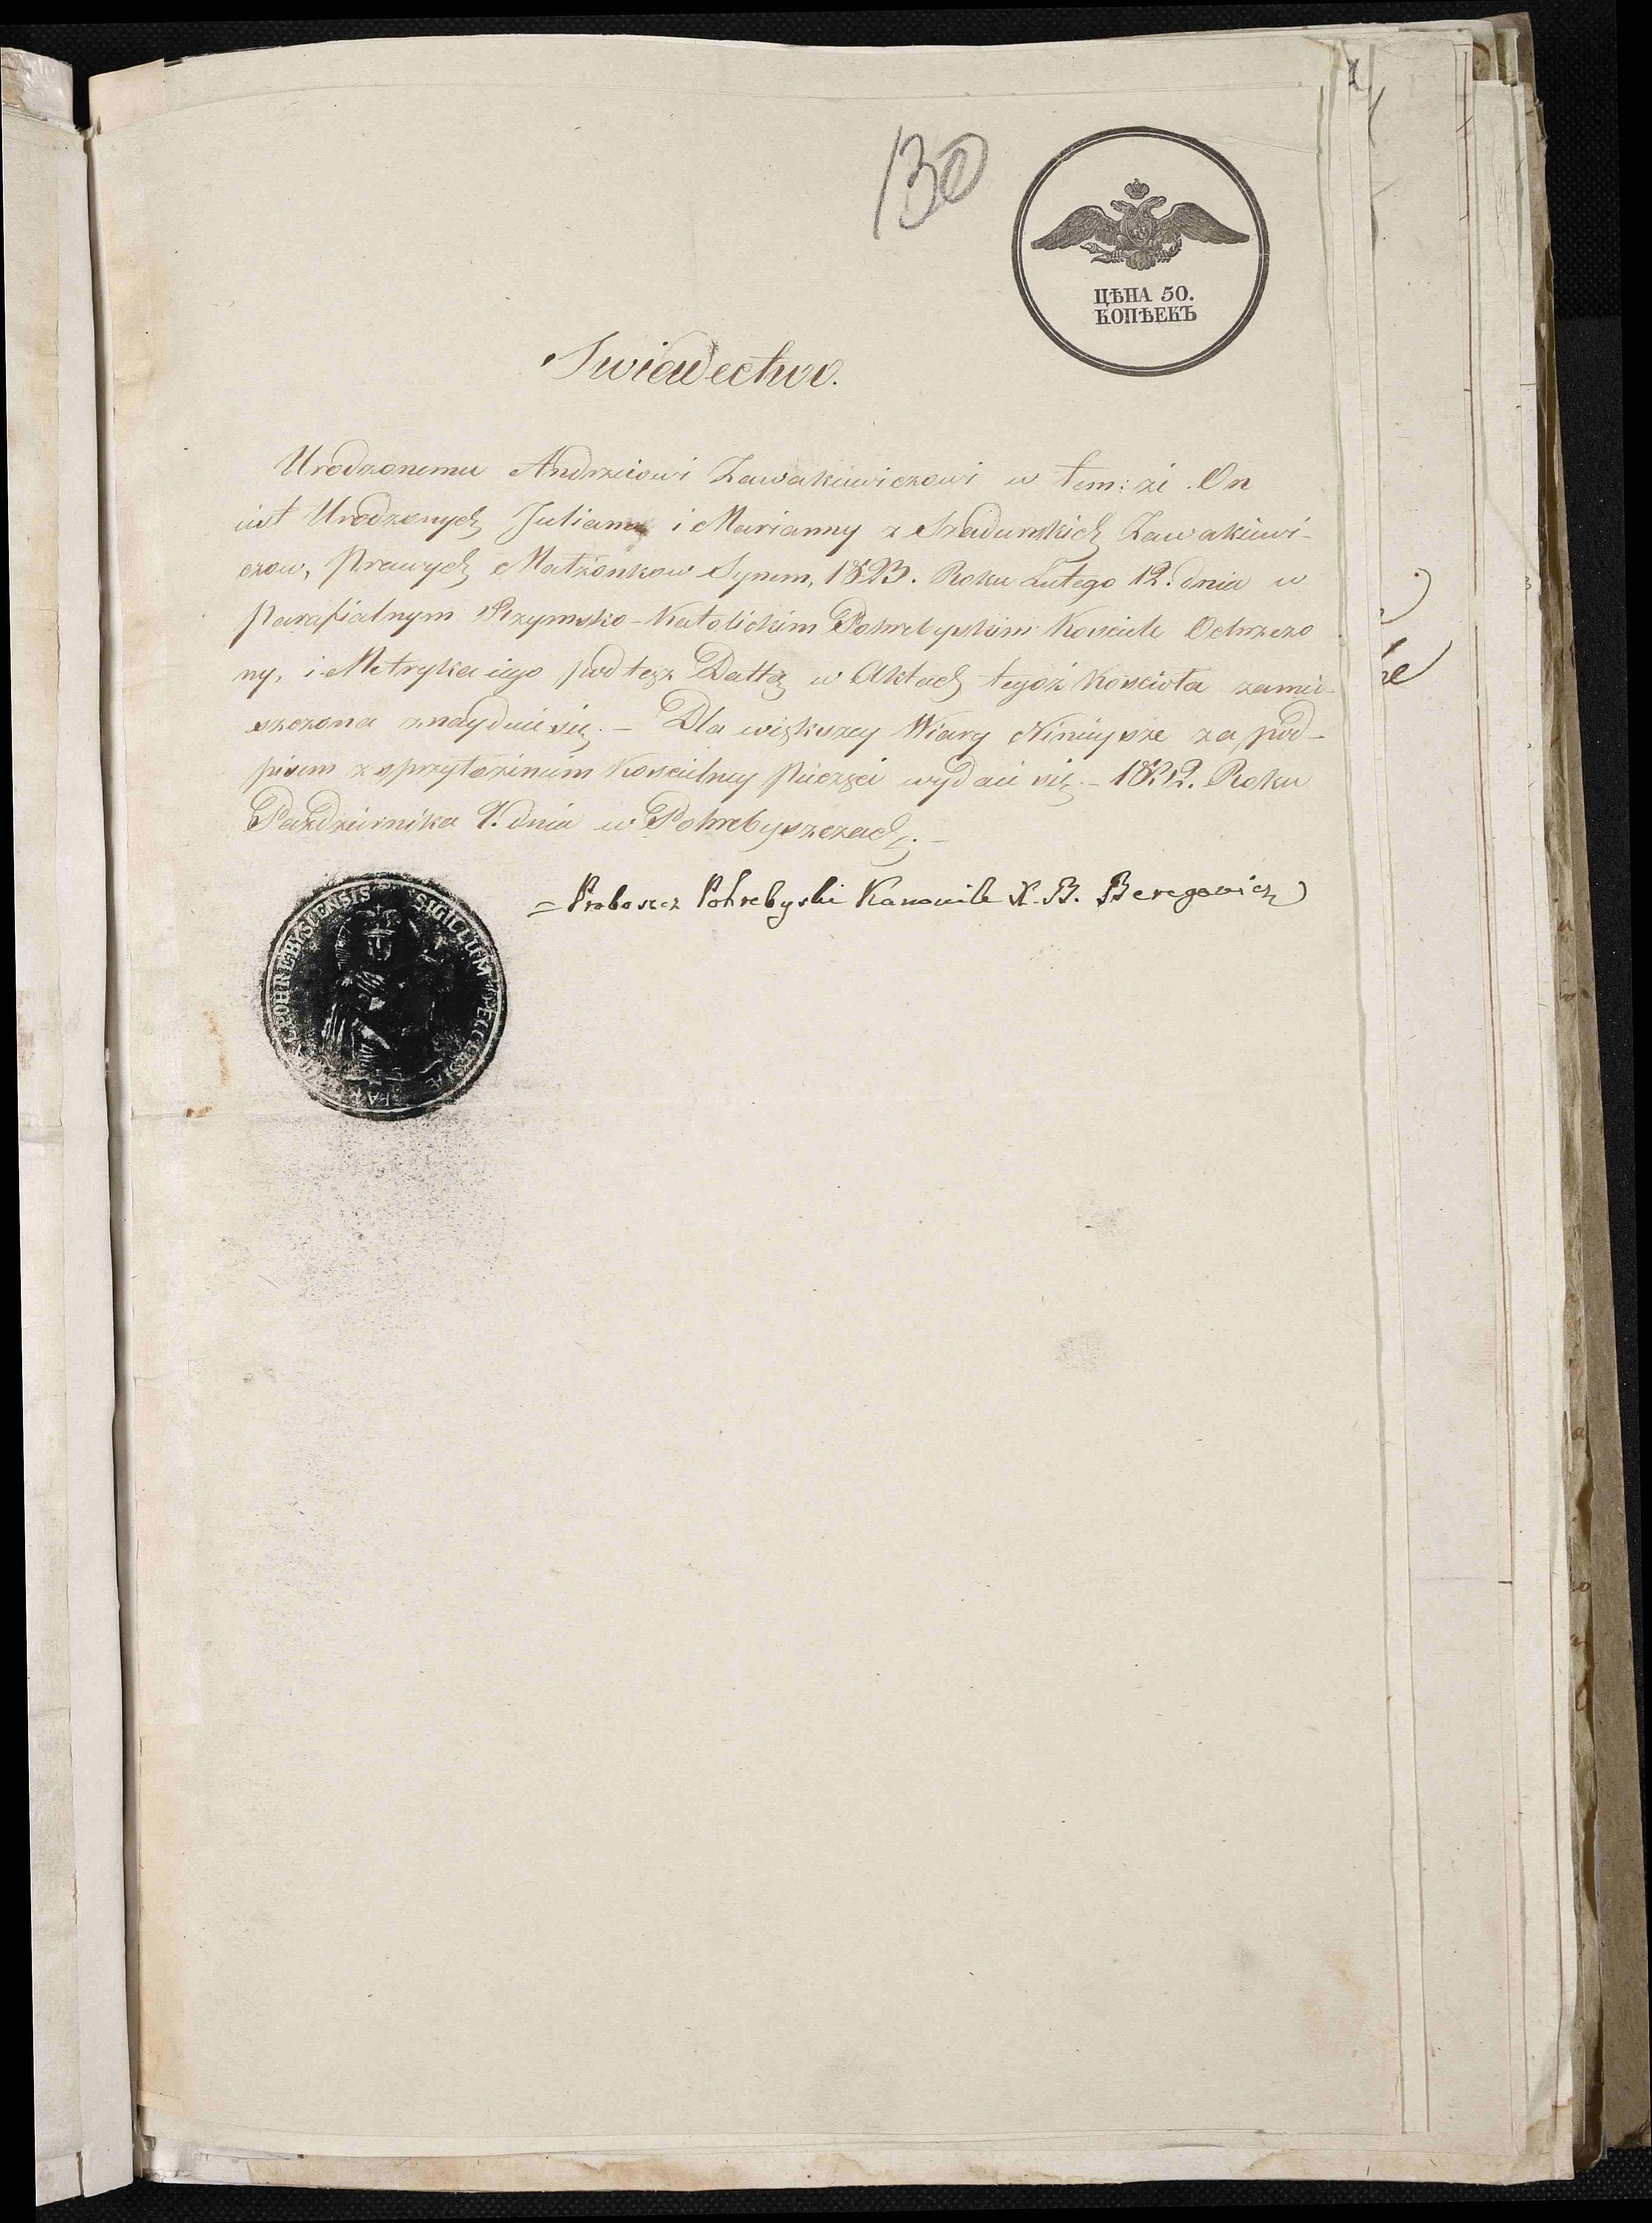 130
ЦѢНА 50.
КОПѢЕКЪ
Swiadectwo.
Urodzonemu Andrzeiowi Zawakiewiczowi w tem: że On
iest Urodzonych Juliana i Marianny z Szadurskich Zawakiewi-
czow, Prawych Małżonkow Synem, 1823. Roku Lutego 12. dnia w
Parafialnym Rzymsko-Katolickim Pohrebyskim Kosciele Ochrzczo
ny, i Metryka iego pod tęż Dattą w Aktach tegoż Kościoła zamie-
szczona znayduie się. – Dla większey Wiary Ninieysze za pod-
pisem z przyłożeniem Koscielney Pieczęci wydaie się. – Roku
Pazdziernika 9. dnia w Pohrebyszczach. –
= Proboszcz Pohrebyski Kanonik X. B. Beregowicz
SIGILLUM ECCLESIÆ PAR POHREBYSCENSIS